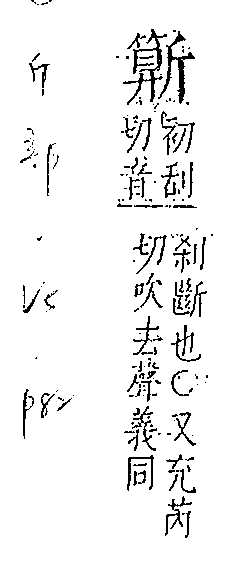 初刮
切音
刹斷也○又充芮
切吹去聲義同
斤部.V5.p82